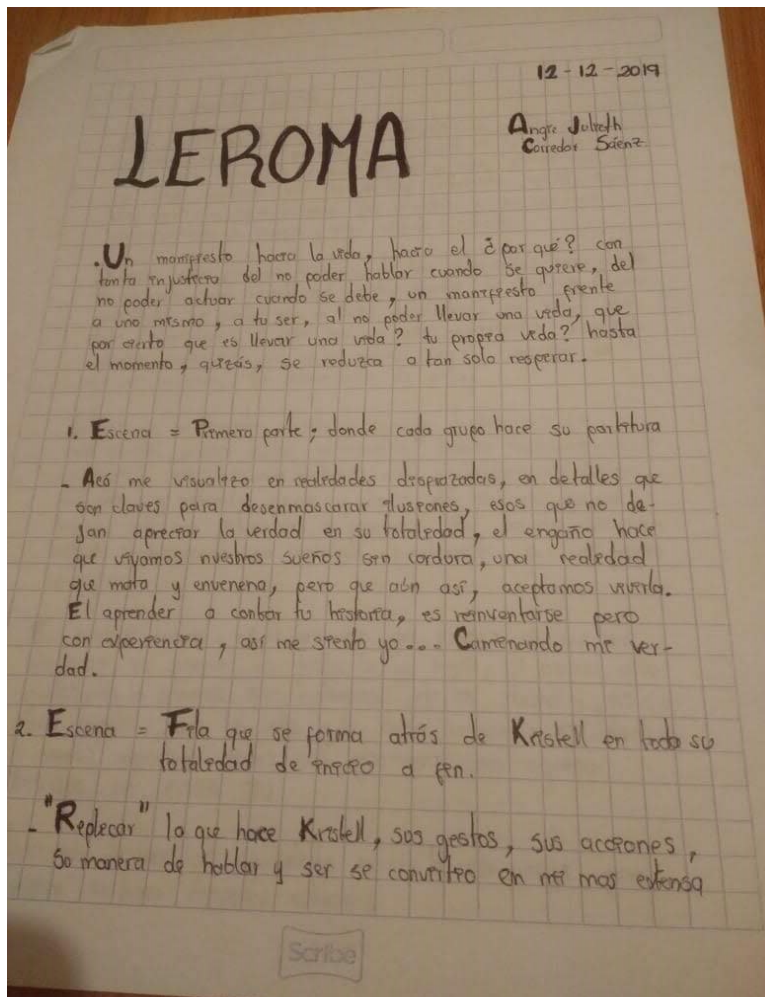 12-12-2019
LEROMA
Angie Julieth
Corredor Sáenz
.Un manifiesto hacia la vida, hacia el ¿por qué? con
tanta injusticia del no poder hablar cuando se quiere, del
no poder actuar cuando se debe, un manifiesto frente
a uno mismo, a tu ser, al no poder llevar una vida, que
por cierto que es llevar una vida? tu propia vida? hasta
el momento, quizás, se reduzca a tan solo respirar.
1. Escena = Primera parte; donde cada grupo hace su partitura
- Acá me visualizo en realidades disfrazadas, en detalles que
son claves para desenmascarar ilusiones, esos que no de-
jan apreciar la verdad en su totalidad, el engaño hace
que vivamos nuestros sueños sin cordura, una realidad
que mata y envenena, pero que aún así, aceptamos vivirla.
El aprender a contar tu historia, es reinventarse pero
con experiencia, así me siento yo... Caminando mi ver-
dad.
2. Escena = Fila que se forma atrás de Kristell en toda su
totalidad de inicio a fin.
- "Replicar" lo que hace Kristell, sus gestos, sus acciones,
su manera de hablar y ser se convirtio en mi mas extensa
Scribe